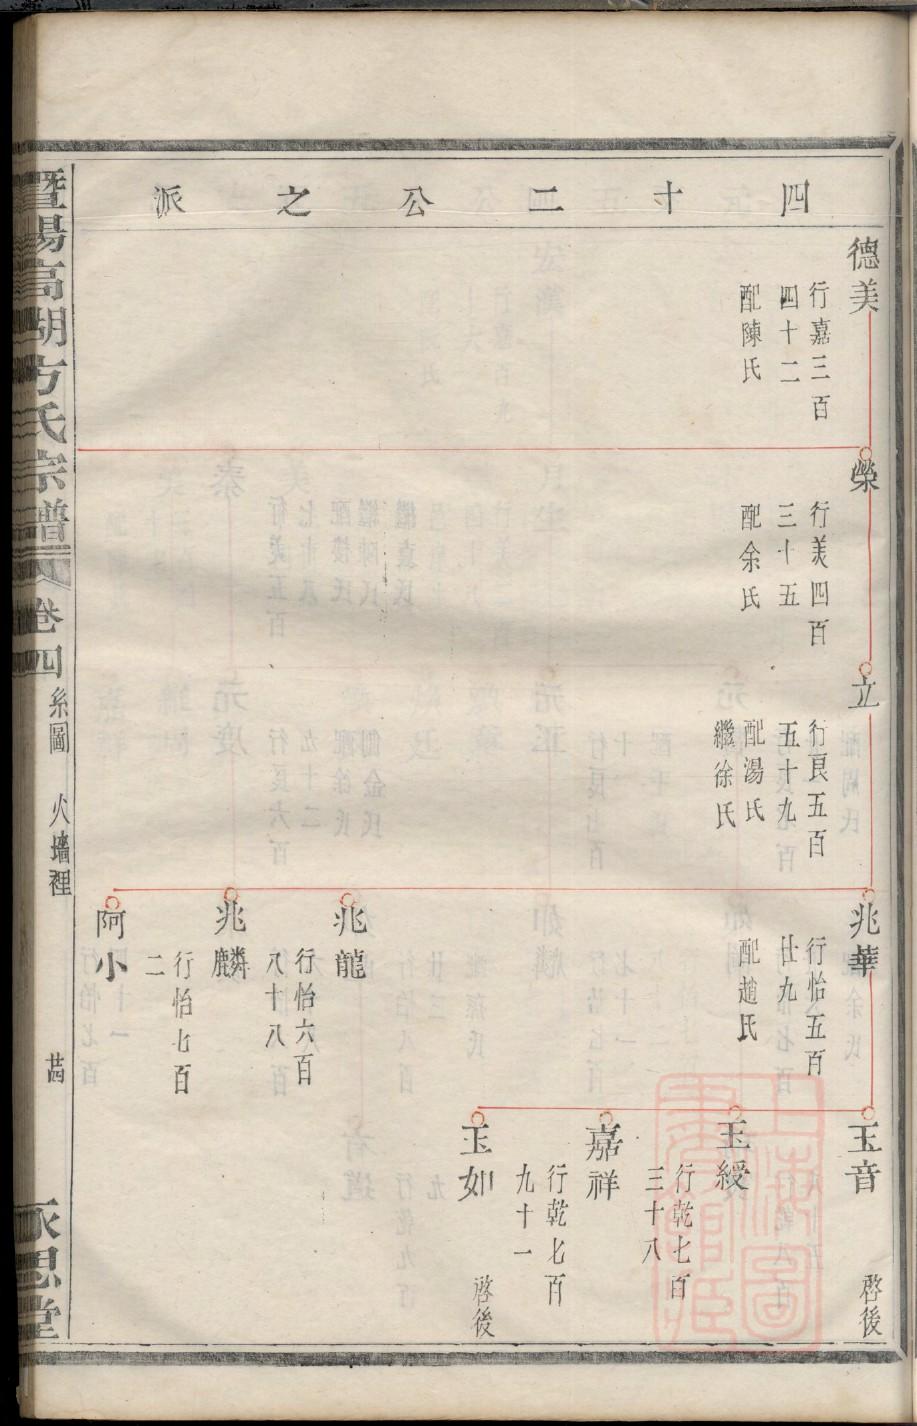 四十二公之派
德美
行嘉三百
四十二
配陳氏
榮
行美四百
三十五
配余氏
立
行良五百
五十九
配湯氏
繼徐氏
兆華
行怡五百
廿九
配趙氏
兆龍
行怡六百
八十八
兆麟
行怡七百
二
阿小
玉音
啓後
玉綬
行乾七百
三十八
嘉祥
行乾七百
九十一
玉如
啓後
暨陽高湖方氏宗譜
卷四
系圖
火墻裡
永思堂